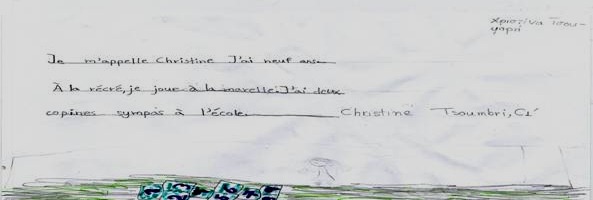 Χριστίνα Τσου-
μπρί
Je m'appelle Christine J'ai neuf ans.
À la récré, je joue à la marelle. J'ai deux
copines sympas à l'école. Christine Tsoumbri, C1'